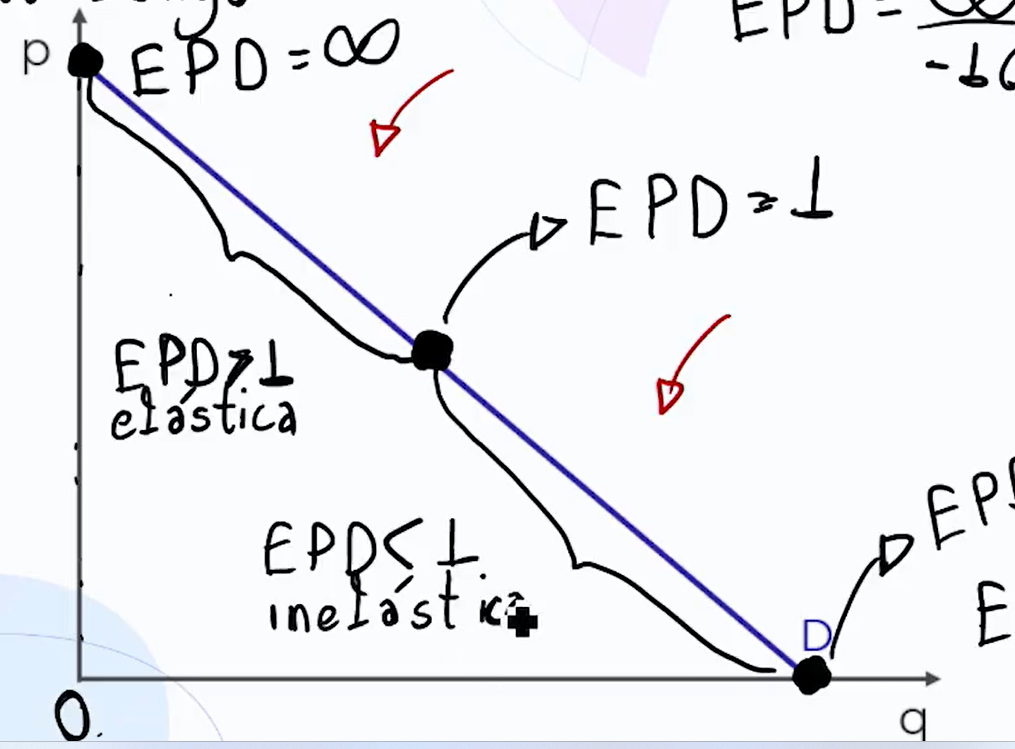 EPD =
p
EPD = ∞
EPD = 1
EPD > 1
elástica
EPD < 1
inelástica
EPD
D
E
0
q